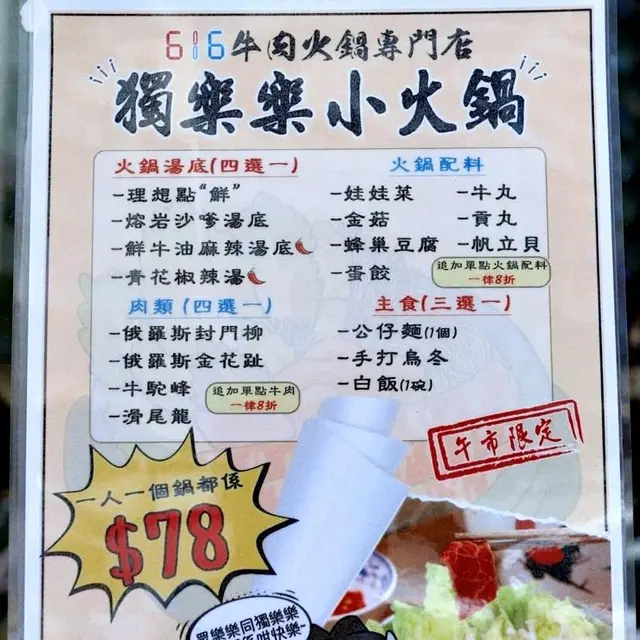 616牛肉火鍋專門店
獨樂樂小火鍋
火鍋湯底(四選一)
-理想點“鮮”
-熔岩沙嗲湯底
-鮮牛油麻辣湯底
-青花椒辣湯
火鍋配料
-娃娃菜
-金菇
-蜂巢豆腐
-蛋餃
-牛丸
-貢丸
-帆立貝
追加單點火鍋配料
一律8折
肉類(四選一)
-俄羅斯封門柳
-俄羅斯金花趾
-牛駝峰
-滑尾龍
追加單點牛肉
一律8折
主食(三選一)
-公仔麵(1個)
-手打烏冬
-白飯(1碗)
午市限定
一人一個鍋都係
$78
眾樂樂同獨樂樂